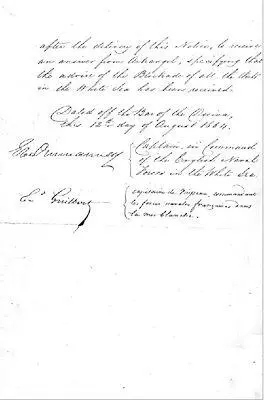 after the delivery of this Notice, to receive
an answer from Arkangel, specifying that
the advice of the Blockade of all the Ports
in the White Sea has been received.
Dated off the Bar of the Dwina,
this 12th day of August 1854.
Captain, in Command
of the English Naval
Forces in the White Sea.
Ed. Guilbert
capitaine de frégate, commandant
les forces navales françaises dans
la mer blanche.